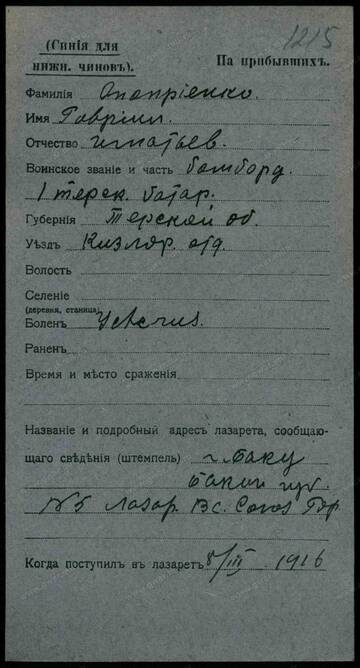 1215
(Синія для
нижн. чиновъ).
На прибывшихъ.
Фамилія Опопріенко.
Имя Гавріил.
Отчество Игнатьев.
Воинское званіе и часть бомбард.
1 терск. батар.
Губернія Терской об.
Уѣздъ Кизляр. отд.
Волость
Селеніе
(деревня, станица)
Боленъ
Раненъ
Время и мѣсто сраженія
Названіе и подробный адресъ лазарета, сообщаю-
щаго свѣдѣнія (штемпель) г. Баку
Бакин губ.
№5 Лазар. Вс. Союз Гор.
Когда поступилъ въ лазаретъ 8/III 1916